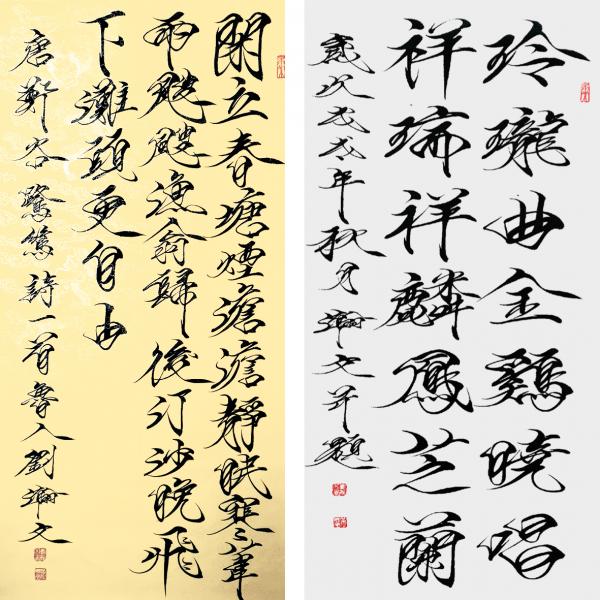 閑立春塘煙澹澹靜眠寒葦
雨颼颼漁翁歸後汀沙晚飛
下灘頭更自由
唐鄭谷鷺鷥詩一首魯人劉瀚文
玲瓏曲金鷄曉唱
祥瑞祥麟鳳芝蘭
歲次戊戌年秋月瀚文并題